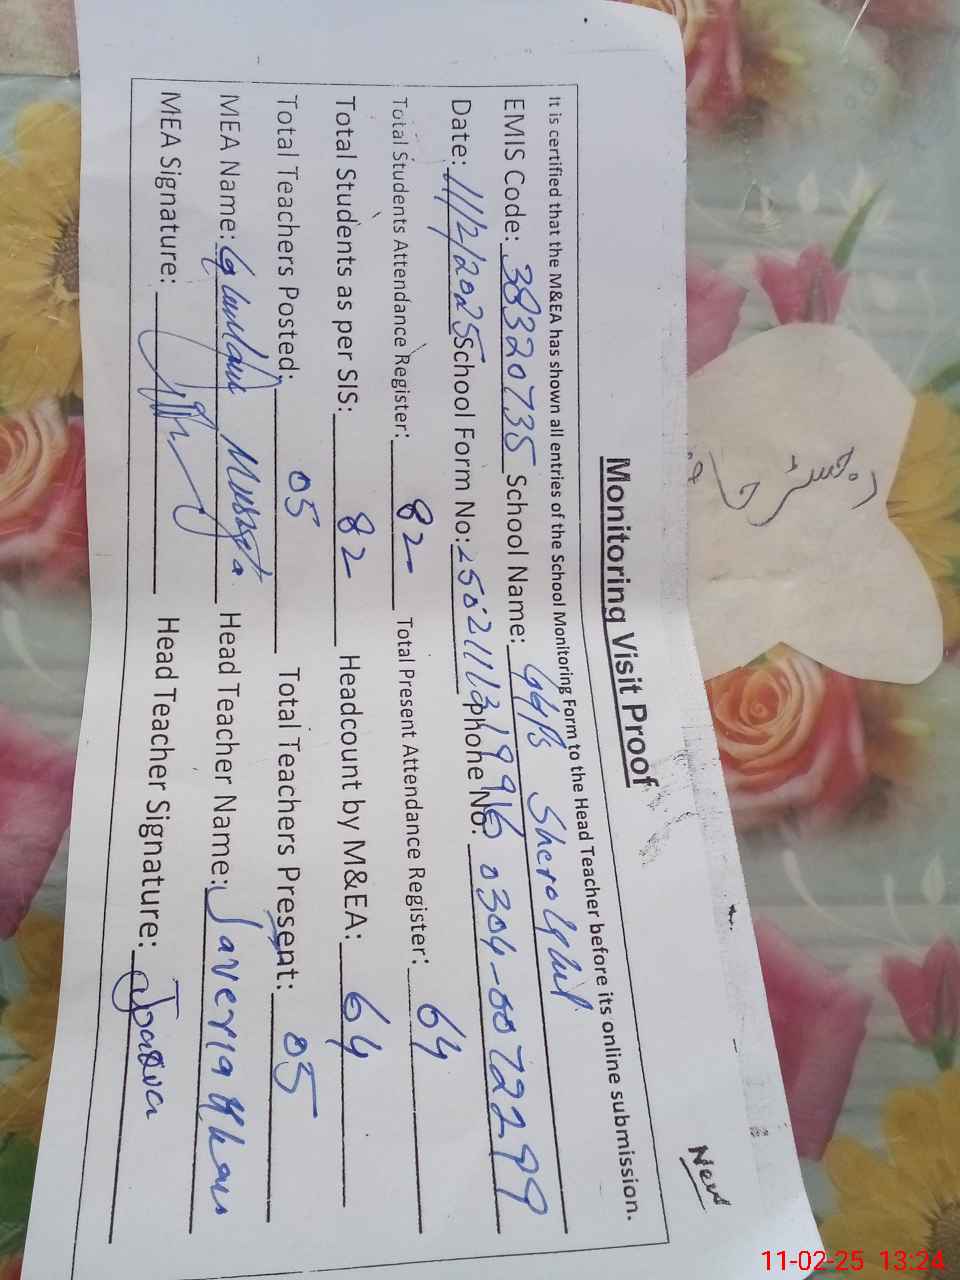 New
Monitoring Visit Proof
It is certified that the M&EA has shown all entries of the School Monitoring Form to the Head Teacher before its online submission.
EMIS Code: 38320735 School Name: GGPS
Date: 11/2/2025 School Form No: phone No: 0304-0072299
Total Students Attendance Register: 82 Total Present Attendance Register: 64
Total Students as per SIS: 82 Headcount by M&EA: 64
Total Teachers Posted: 05 Total Teachers Present: 05
MEA Name: Head Teacher Name: Javeria Khan
MEA Signature: Head Teacher Signature:
11-02-25 13:24